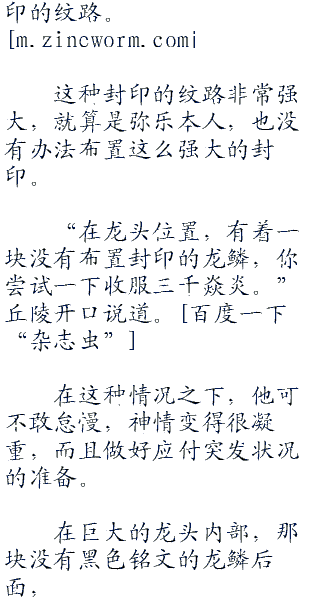 印的纹路。
[m.zincworm.com|
这种封印的纹路非常强
大，就算是弥乐本人，也没
有办法布置这么强大的封
印。
“在龙头位置，有着一
块没有布置封印的龙鳞，你
尝试一下收服三千焱炎。”
丘陵开口说道。[百度一下
“杂志虫”]
在这种情况之下，他可
不敢怠慢，神情变得很凝
重，而且做好应付突发状况
的准备。
在巨大的龙头内部，那
块没有黑色铭文的龙鳞后
面，